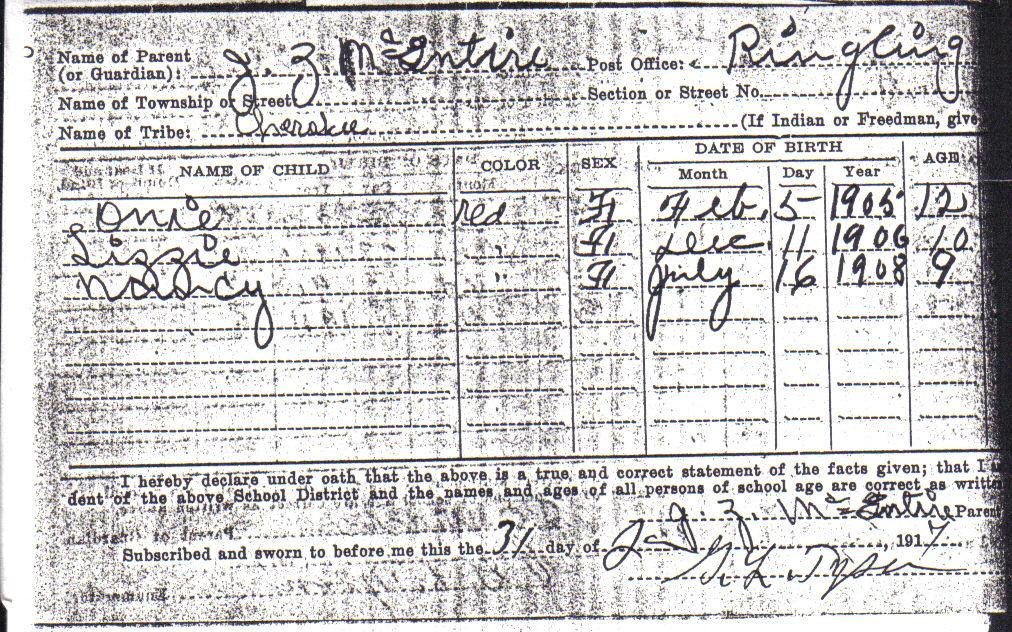 Name of Parent (or Guardian): J. Z McEntire Post Office: Ringling
Name of Township or Street Section or Street No.
Name of Tribe: Cherokee (If Indian or Freedman, give
NAME OF CHILD COLOR SEX DATE OF BIRTH AGE
Month Day Year
Onie red F Feb. 5 1905 12
Lizzie " F Dec. 11 1906 10
Nancy " F July 16 1908 9
I hereby declare under oath that the above is a true and correct statement of the facts given; that I
dent of the above School District and the names and ages of all persons of school age are correct as writt
J. Z. McEntire Paren
Subscribed and sworn to before me this the 31 day of Jan, 1917